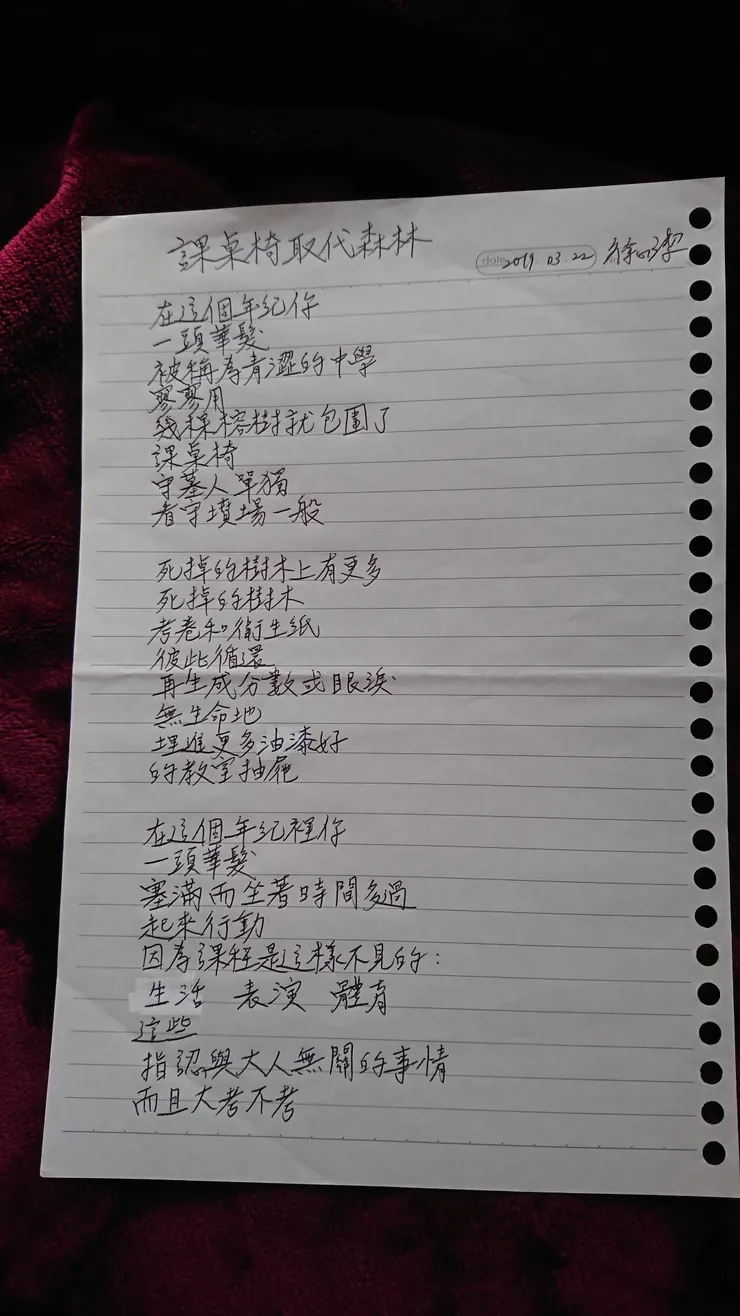 課桌椅取代森林
date 2019.03.22 徐
在這個年紀你
一頭華髮
被稱為青澀的中學
寥寥用
幾棵榕樹就包圍了
課桌椅
守墓人單獨
看守墳場一般
死掉的樹木上有更多
死掉的樹木
考卷和衛生紙
彼此循環
再生成分數或眼淚
無生命地
埋進更多油漆好
的教室抽屜
在這個年紀裡你
一頭華髮
塞滿而坐著時間多過
起來行動
因為課程是這樣不見的:
生活 表演 體育
這些
指認與大人無關的事情
而且大考不考